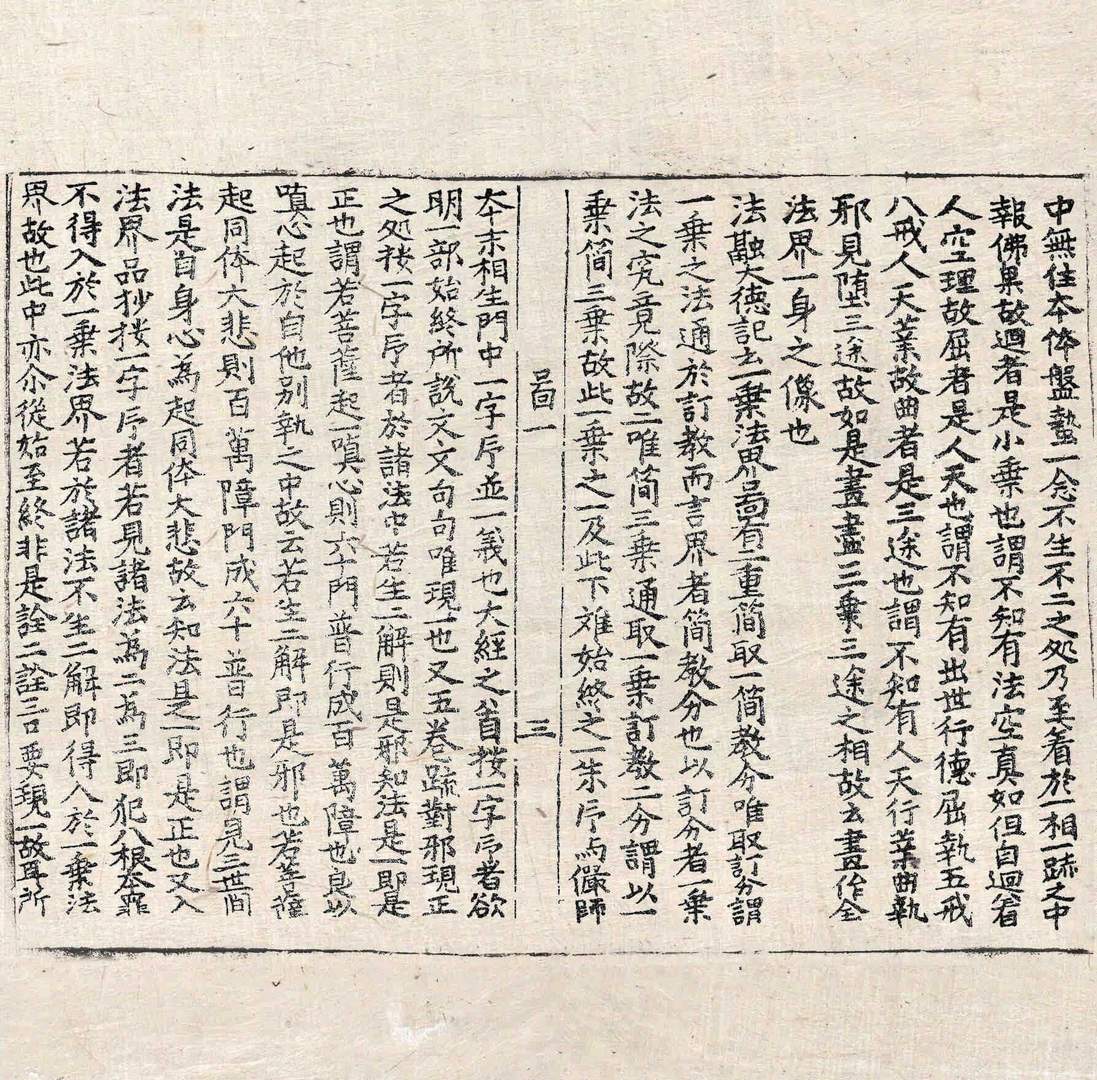 中無住本体盤蟄一念不生不二之処乃至着於一相一跡之中
報佛果故迴者是小乗也謂不知有法空真如但自迴着
人空理故屈者是人天也謂不知有出世行德屈執五戒
八戒人天業故曲者是三途也謂不知有人天行業曲執
邪見堕三途故如是畫盡三乗三途之相故云畫作全
法界一身之像也
法融大德記云一乗法界啚有二重簡取一簡教分唯取訂分謂
一乗之法通於訂教而言界者簡教分也以訂分者一乗
法之究竟際故二唯簡三乗通取一乗訂教二分謂以一
乗簡三乗故此一乗之一及此下难始終之一朱序与儼師
啚一 三
本末相生門中一字序並一義也大經之首按一字序者欲
明一部始終所說文文句句唯現一也又五卷疏對邪現正
之処按一字序者於諸法中若生二解則是邪知法是一即是
正也謂若菩薩起一嗔心則六十門普行成百萬障也良以
嗔心起於自他别執之中故云若生二解即是邪也若菩薩
起同体大悲則百萬障門成六十普行也謂見三世間
法是自身心為起同体大悲故云知法是一即是正也又入
法界品抄按一字序者若見諸法為二為三即犯八根本罪
不得入於一乗法界若於諸法不生二解即得入於一乗法
界故也此中亦尒從始至終非是詮二詮三口要現一故耳所